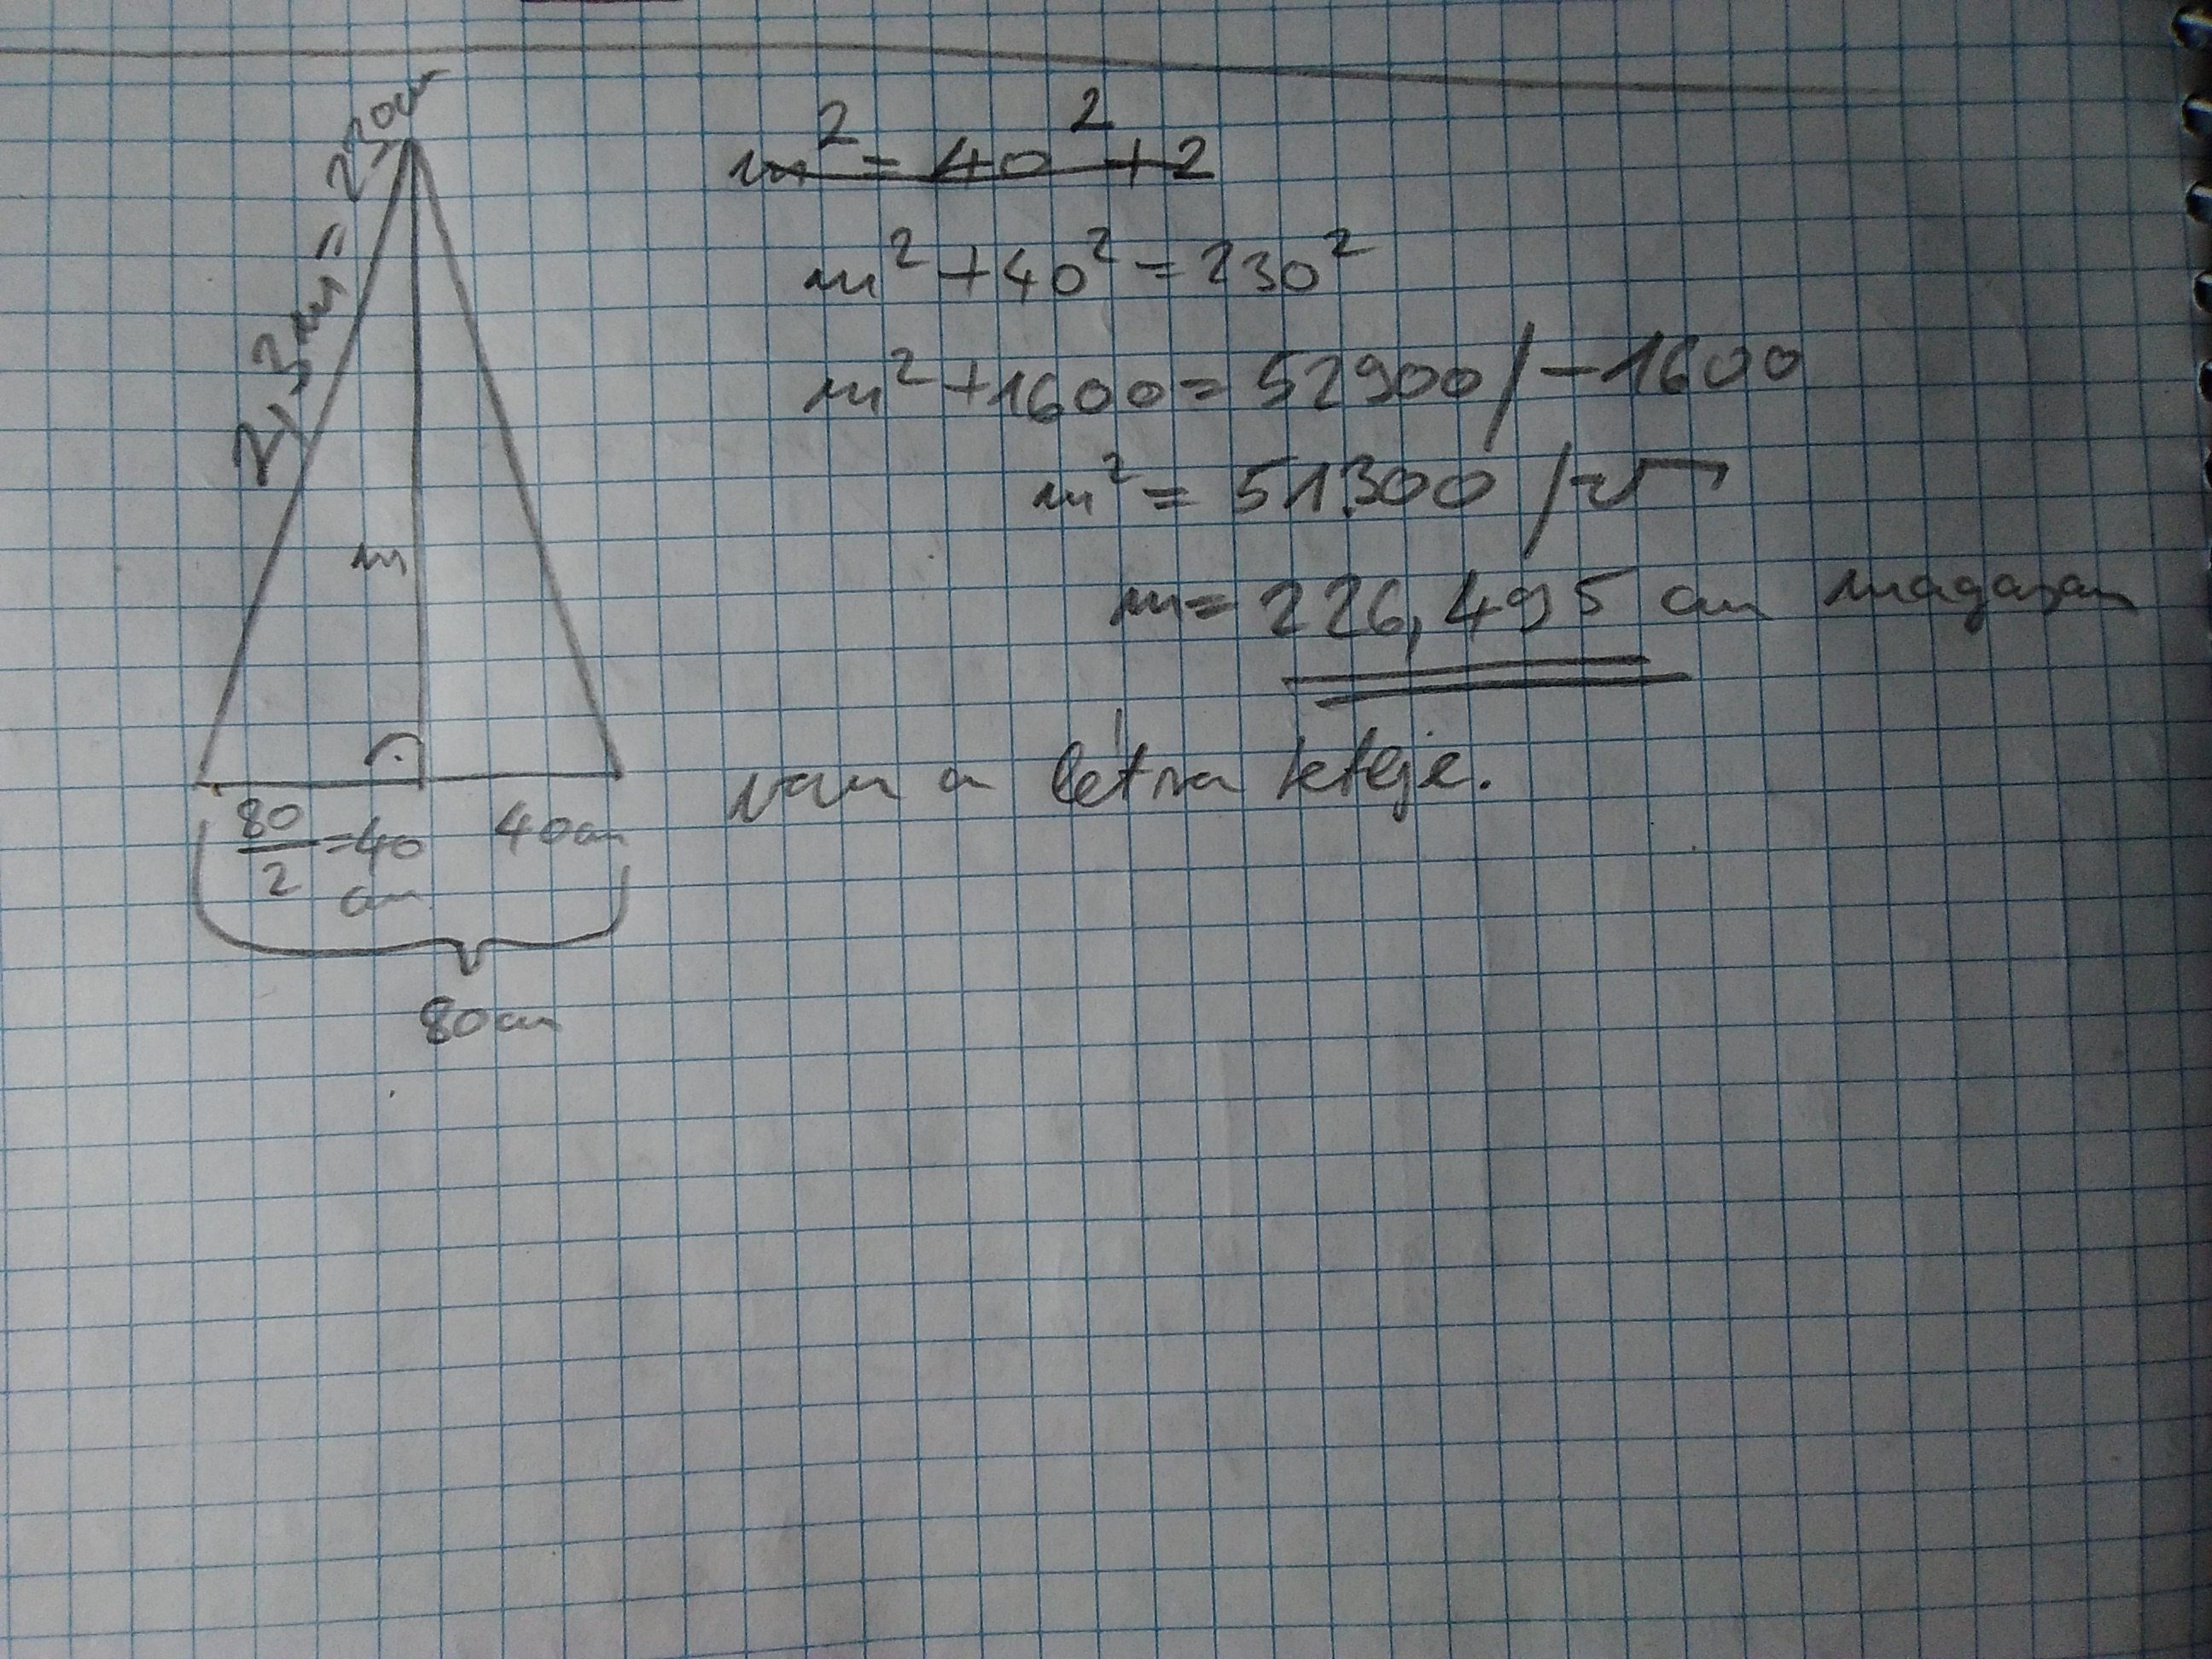 2,3m = 230cm
m
80/2 = 40 cm
40cm
80cm
m² = 40² + 2
m² + 40² = 230²
m² + 1600 = 52900 / -1600
m² = 51300 / √
m = 226,495 cm magasan
van a létra teteje.